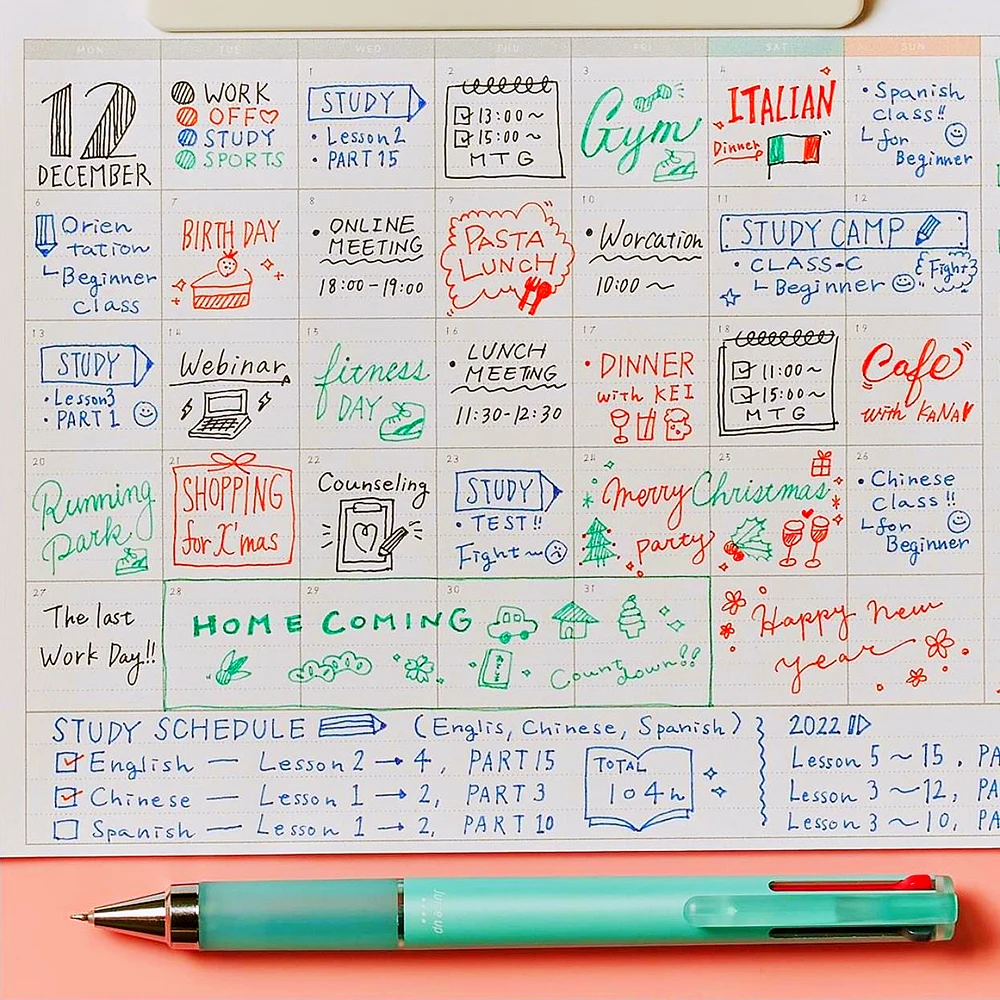 MON TUE WED THU FRI SAT SUN
12
DECEMBER
WORK
OFF
STUDY
SPORTS
1
STUDY
• Lesson 2
• PART 15
2
13:00~
15:00~
MTG
3
Gym
4
ITALIAN
Dinner
5
• Spanish
class!!
for
Beginner
6
Orien
tation
Beginner
class
7
BIRTH DAY
8
• ONLINE
MEETING
18:00-19:00
9
PASTA
LUNCH
10
• Worcation
10:00~
11
12
STUDY CAMP
• CLASS-C
Beginner
Fight
13
STUDY
• Lesson3
• PART 1
14
Webinar
15
fitness
DAY
16
• LUNCH
MEETING
11:30-12:30
17
• DINNER
with KEI
18
11:00~
15:00~
MTG
19
Cafe
with KANA
20
Running
park
21
SHOPPING
for X'mas
22
Counseling
23
STUDY
• TEST!!
Fight~
24
25
Merry Christmas
party
26
• Chinese
class!!
for
Beginner
27
The last
Work Day!!
28
29
30
31
HOME COMING
Count
down!!
Happy new
year
STUDY SCHEDULE (Englis, Chinese, Spanish)
English — Lesson 2 → 4, PART 15
Chinese — Lesson 1 → 2, PART 3
Spanish — Lesson 1 → 2, PART 10
TOTAL
104h
2022
Lesson 5 ~ 15 , PA
Lesson 3 ~ 12, PA
Lesson 3 ~ 10, PA